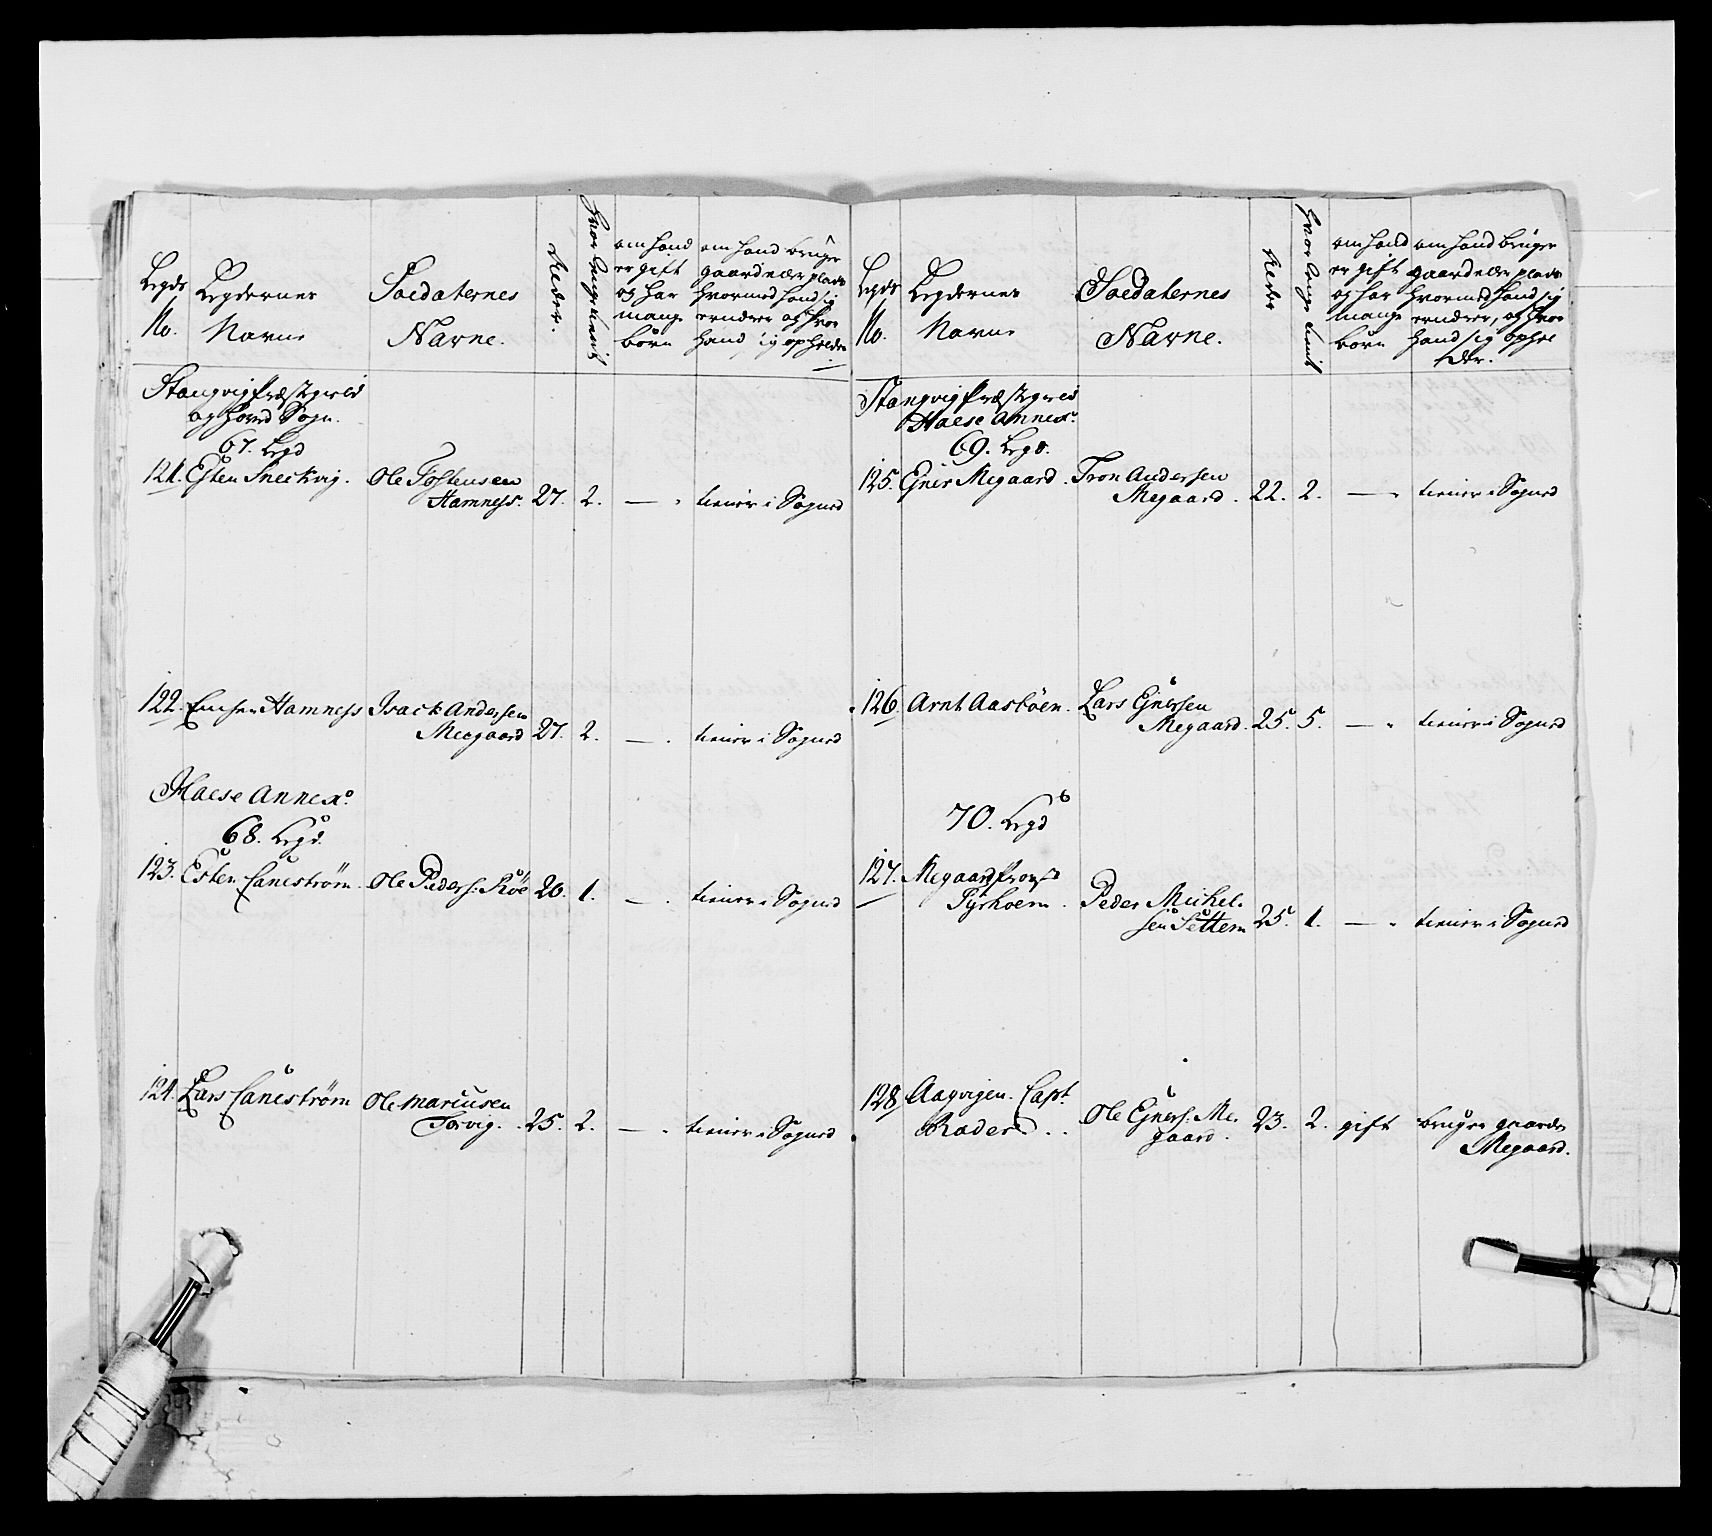 Legds
No.
Legdernes
Navne
Soldaternes
Navne.
Alder.
hvor lenge tient
om hand
er gift
og har
mange
börn
om hand bruger
gaard eller plads
hvormed hand sig
ernærer og hvor
hand sig opholder
Stangvig Præstgield
og hoved Sogn.
67. Legd
121. Esten Sneckvig. Ole Tostensen
Hamness. 27. 2. — . tiener i Sogned
122. Hamness Isack Andersen
Meogaard 27. 2. — . tiener i Sogned
Halse Annex.
68. Legd.
123. Esten Canestrøm. Ole Peders: Röe 20. 1. — . tiener i Sogned
124. Lars Canestrøm Ole Mariusen
Torvig. 25. 2. — . tiener i Sogned
Legds
No.
Legdernes
Navne
Soldaternes
Navne.
Alder
hvor lenge tient
om hand
er gift
og har
mange
börn
om hand bruger
gaard eller plads
hvormed hand sig
ernærer, og hvor
hand sig ophol
der.
Stangvig Præstgield
Halse Annex.
69. Legd.
125. Ejner Megaard. Tron Andersen
Megaard. 22. 2. — . tiener i Sogned
126. Arnt Aasböen. Lars Ejnersen
Megaard. 25. 5. — . tiener i Sogned
70. Legd
127. Megaard
Peder Michel-
sen Settem 25. 1. — . tiener i Sogned
128. Aagvigen. Capt:
Rader. . Ole Ejners: Me-
gaard. 23. 2. gift bruger gaarden
Megaard.